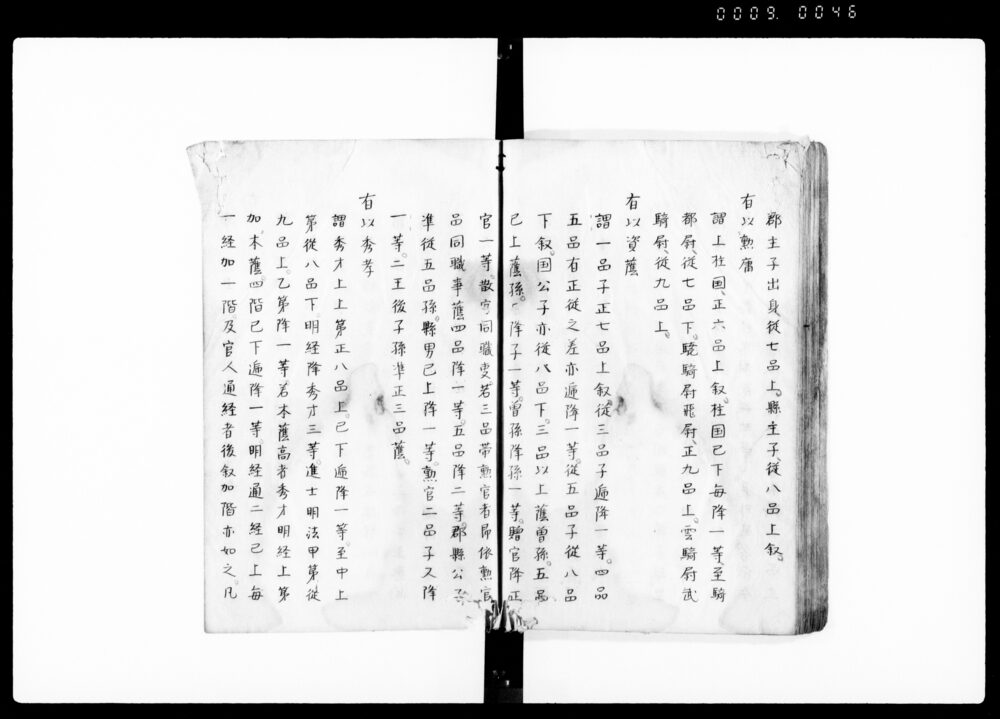 0009. 0046
郡主子出身従七品上。縣主子、従八品上叙。
有以勲庸
謂上柱国、正六品上叙。柱国已下、毎降一等、至騎
都尉、従七品下。驍騎尉・飛騎尉、正九品上。雲騎尉・武
騎尉、従九品上。
有以資蔭
謂一品子正七品上叙。従三品子逓降一等。四品
五品有正従之差、亦逓降一等。従五品子従八品
下叙。国公子亦従八品下。三品以上蔭曾孫。五品
已上蔭孫。孫降子一等。曾孫降孫一等。贈官降正
官一等。散官同職事。若三品帯勲官者、即依勲官
品同職事蔭、四品降一等、五品降二等。郡縣公子
準従五品孫。縣男已上降一等。勲官二品子、又降
一等。二王後子孫準正三品蔭。
有以秀孝
謂秀才上上第、正八品上。已下逓降一等、至中上
第従八品下。明経降秀才三等。進士明法甲第従
九品上。乙第降一等。若本蔭高者、秀才明経上第
加本蔭四階、已下逓降一等。明経通二経已上、毎
一経加一階。及官人通経者、後叙加階亦如之。凡